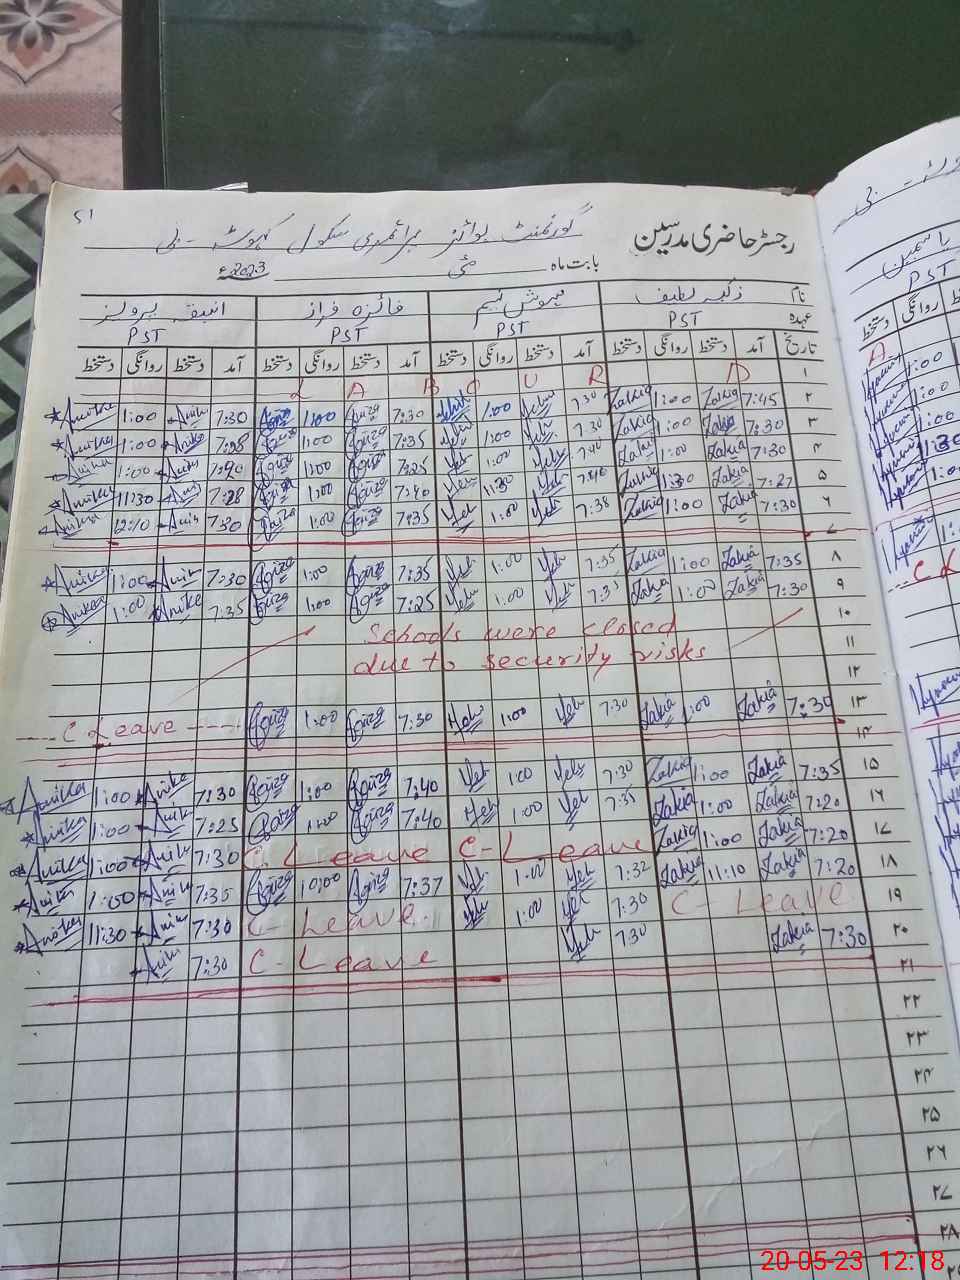 51
رجسٹر حاضری مدرسین گورنمنٹ بوائز پرائمری سکول کہوٹہ - بی
بابت ماہ مئی 2023ء
نام ذکیہ لطیف مہوش نسیم فائزہ فراز انیقہ پرویز
عہدہ PST PST PST PST
تاریخ آمد دستخط روانگی دستخط آمد دستخط روانگی دستخط آمد دستخط روانگی دستخط آمد دستخط روانگی دستخط
۱ L A B O U R D
Anika 1:00 Anik 7:30 Faiza 1:00 Faiza 7:30 Meh 1:00 Meh 7:30 Zakia 1:00 Zakia 7:45 ۲
Anika 1:00 Anika 7:28 Faiza 1:00 Faiza 7:35 Meh 1:00 Meh 7:30 Zakia 1:00 Zakia 7:30 ۳
Anika 1:00 Anik Faiza 1:00 Faiza 7:25 Meh 1:00 Meh 7:40 Zakia 1:00 Zakia 7:30 ۴
Anika 11:30 Anik 7:28 Faiza 1:00 Faiza 7:40 Meh 11:30 Meh 7:40 Zakia 11:30 Zakia 7:27 ۵
Anika 12:10 Anik 7:30 Faiza 1:00 Faiza 7:35 Meh 1:00 Meh 7:38 Zakia 1:00 Zakia 7:30 ۶
۷
Anika 1:00 Anik 7:30 Faiza 1:00 Faiza 7:35 Meh 1:00 Meh 7:35 Zakia 1:00 Zakia 7:35 ۸
Anika 1:00 Anika 7:35 Faiza 1:00 Faiza 7:25 Meh 1:00 Meh 7:35 Zakia 1:00 Zakia 7:30 ۹
Schools were closed ۱۰
due to security risks ۱۱
۱۲
C Leave Faiza 1:00 Faiza 7:30 Meh 1:00 Meh 7:30 Zakia 1:00 Zakia 7:30 ۱۳
۱۴
Anika 1:00 Anika 7:30 Faiza 1:00 Faiza 7:40 Meh 1:00 Meh 7:30 Zakia 1:00 Zakia 7:35 ۱۵
Anika 1:00 Anik 7:25 Faiza 1:00 Faiza 7:40 Meh 1:00 Meh 7:35 Zakia 1:00 Zakia 7:20 ۱۶
Anika 1:00 Anik 7:30 C Leave C-Leave Zakia 1:00 Zakia 7:20 ۱۷
Anika 1:00 Anik 7:35 Faiza 10:00 Faiza 7:37 Meh 1:00 Meh 7:32 Zakia 11:10 Zakia 7:20 ۱۸
Anika 11:30 Anik 7:30 C-Leave Meh 1:00 Meh 7:30 C-Leave ۱۹
Anik 7:30 C-Leave Meh 7:30 Zakia 7:30 ۲۰
۲۱
۲۲
۲۳
۲۴
۲۵
۲۶
۲۷
۲۸
PST
20-05-23 12:18